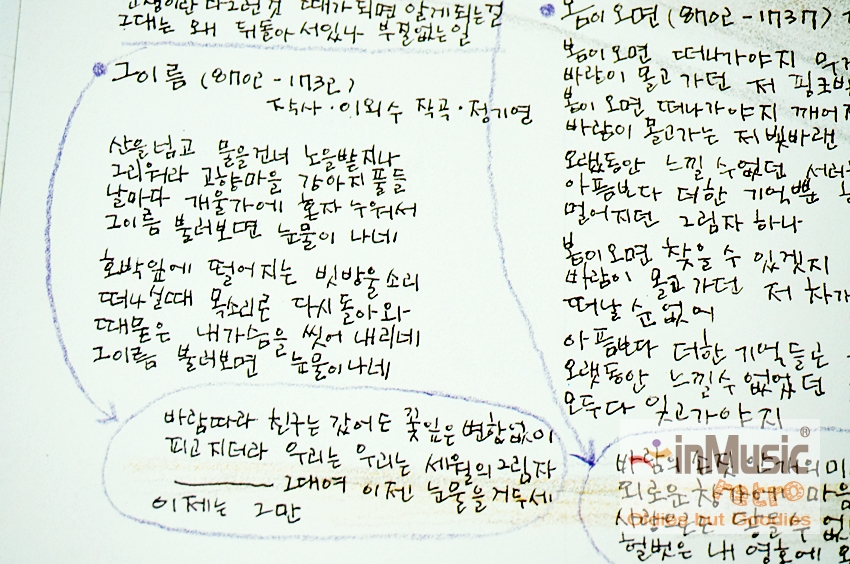 고생이란 다 그런 것 때가 되면 알게 되는걸
그대는 왜 뒤돌아 서있나 부질없는 일
그이름 (8702-1732)
작사·이외수 작곡·정기열
산을넘고 물을건너 노을밭지나
그리워라 고향마을 강아지풀들
날마다 개울가에 혼자 누워서
그이름 불러보면 눈물이 나네
호박잎에 떨어지는 빗방울소리
떠나실때 목소리로 다시돌아와
때묻은 내가슴을 씻어 내리네
그이름 불러보면 눈물이나네
바람따라 친구는 갔어도 꽃잎은 변함없이
피고 지더라 우리는 우리는 세월의 그림자
그대여 이젠 눈물을 거두세
이제는 그만
봄이 오면 (8702-1737)
봄이오면 떠나가야지
바람이 몰고 가던 저 핑크빛
봄이 오면 떠나가야지 깨어
바람이 몰고가는 저 빛바랜
오랫동안 느낄 수 없던 서러
아픔보다 더한 기억뿐
멀어지던 그림자 하나
봄이오면 찾을 수 있겠지
바람이 몰고 가던 저 차가
떠날 순 없어
아픔보다 더한 기억들로
오랫동안 느낄수 없었던
모두다 잊고가야지
바람의
외로운 창가에 마음
사랑으로도 닿을 수 없
헐벗은 내 영혼에
inMusic®
retro
Oldies but Goodies